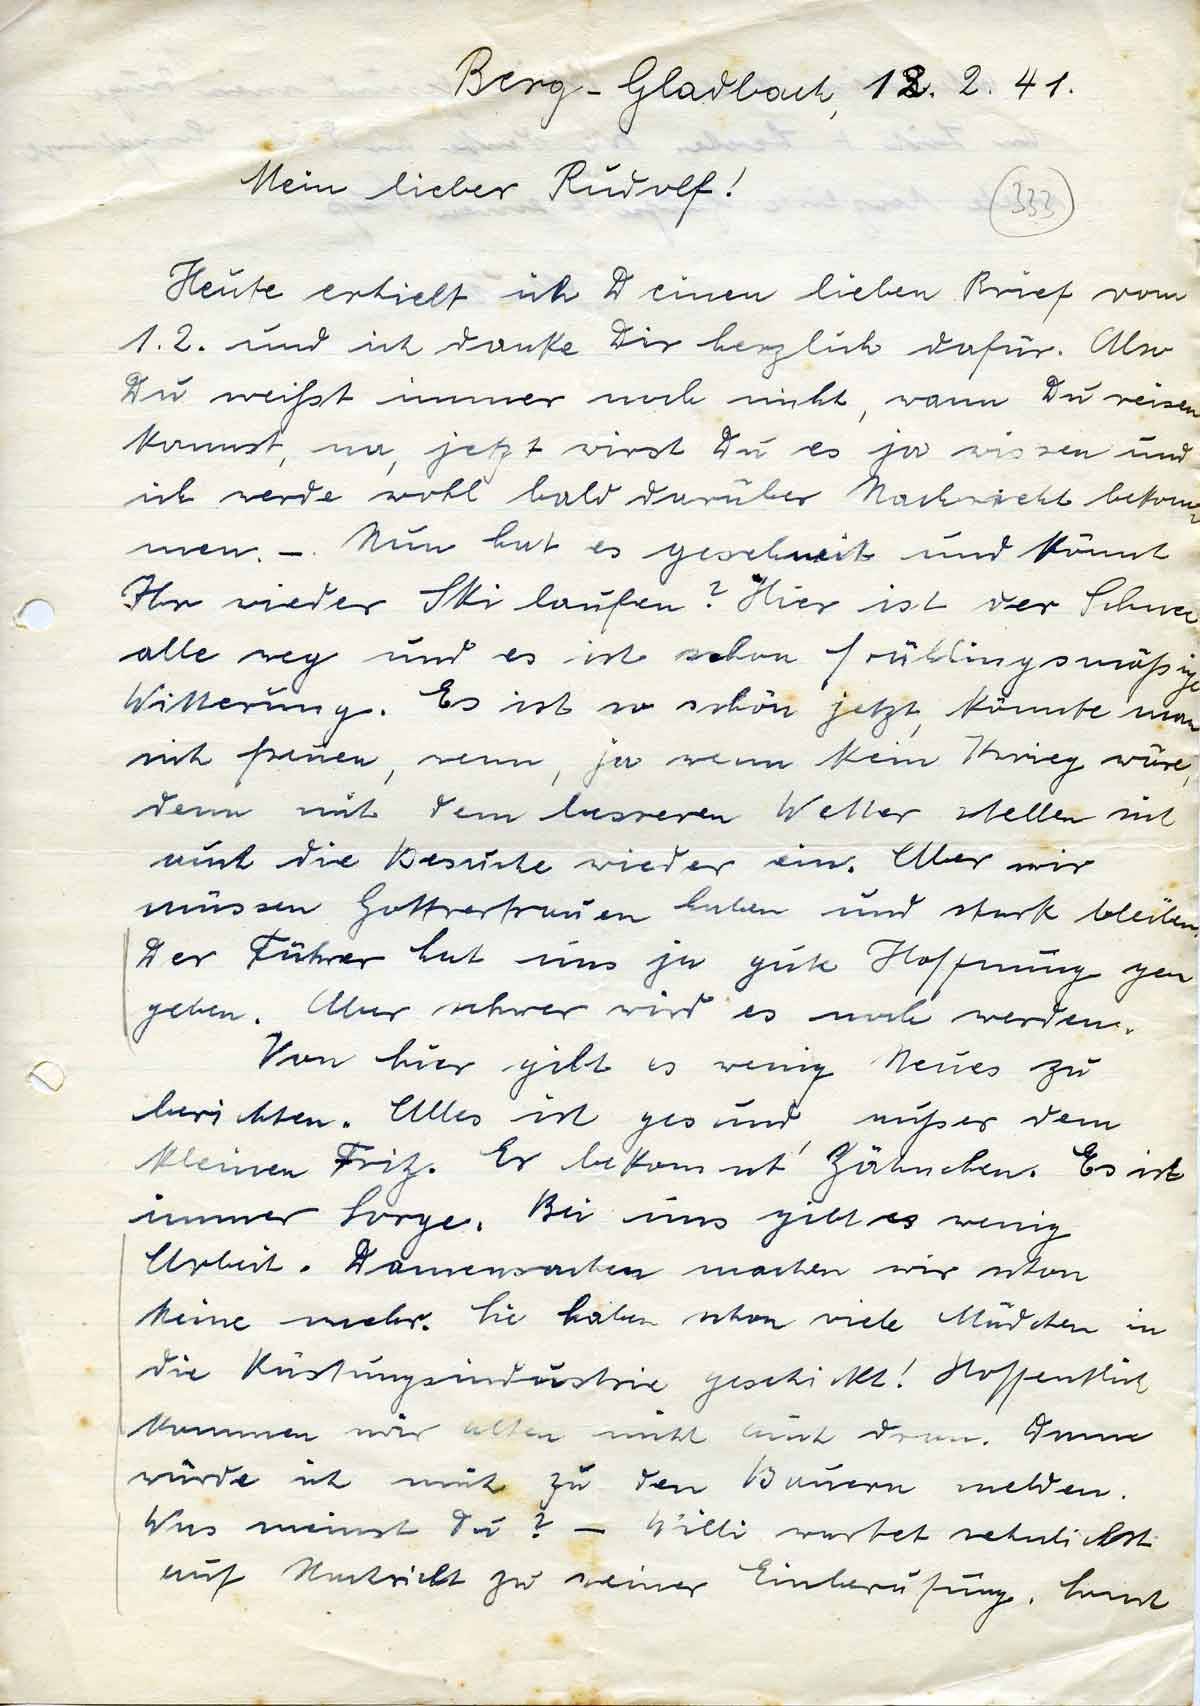 Berg-Gladbach, 12. 2. 41.
Mein lieber Rudolf!
333
Heute erhielt ich Deinen lieben Brief vom
1. 2. und ich danke Dir herzlich dafür. Also
Du weißt immer noch nicht, wann Du reisen
kannst, na, jetzt wirst Du es ja wissen und
ich werde wohl bald darüber Nachricht bekom-
men. – Nun hat es geschneit und könnt
Ihr wieder Ski laufen? Hier ist der Schnee
alle weg und es ist schon frühlingsmäßige
Witterung. Es ist so schön jetzt, könnte man
sich freuen, wenn, ja wenn kein Krieg wäre,
denn mit dem besseren Wetter stellen sich
auch die Besuche wieder ein. Aber wir
müssen Gottvertrauen haben und stark bleiben.
Der Führer hat uns ja gute Hoffnung gen
geben. Aber schwer wird es noch werden.
Von hier gibt es wenig Neues zu
berichten. Alles ist gesund, außer dem
kleinen Fritz. Er bekommt Zähnchen. Es ist
immer Sorge. Bei uns gibt es wenig
Arbeit. Damensachen machen wir schon
keine mehr. Sie haben schon viele Mädchen in
die Rüstungsindustrie geschickt! Hoffentlich
kommen wir alten nicht auch dran. Dann
würde ich mich zu den Bauern melden.
Was meinst Du? – Willi wartet sehnlichst
auf Nachricht zu seiner Einberufung. Sonst